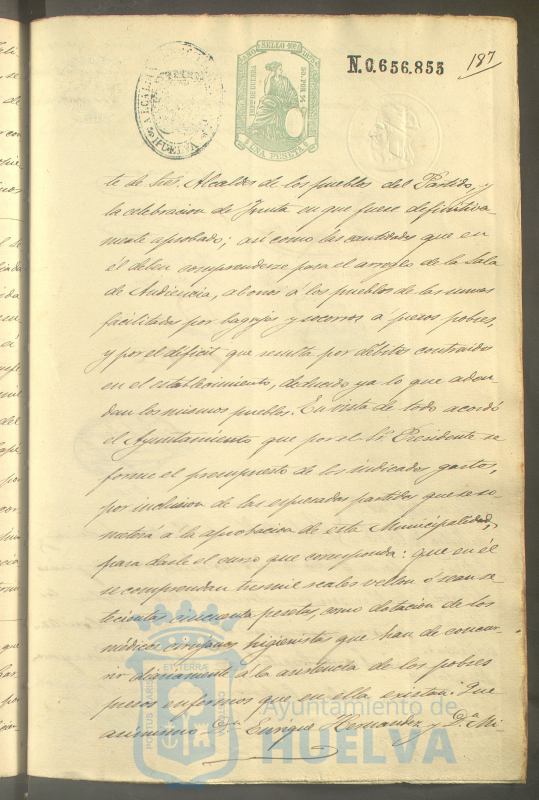 SELLO 10º
IMPTO DE GUERRA
UNA PESETA
ALCALDIA
HUELVA
N.0.656.855
187
te de Sres. Alcaldes de los pueblos del Partido, y
la celebracion de Junta en que fuese definitiva
mente aprobado; asi como las cantidades que en
él deben comprenderse para el arreglo de la Sala
de Audiencia, abonos á los pueblos de las sumas
facilitadas por bagajes y socorros a presos pobres,
y por el déficit que resulta por débitos contraidos
en el establecimiento, deducido ya lo que adeu-
dan los mismos pueblos. En vista de todo acordó
el Ayuntamiento que por el Sr. Presidente se
forme el presupuesto de los indicados gastos,
por inclusion de las espresadas partidas que se so-
meterá á la aprobacion de esta Municipalidad,
para darle el curso que corresponda: que en él
se comprendan tres mil reales vellon ó sean se
tecientas cincuenta pesetas, como dotacion de los
médicos cirujanos higienistas que han de concur-
rir diariamente á la asistencia de los pobres
presos enfermos que en ella existan: Que
asimismo Dn. Enrique Hernandez y D.n Mi-
PORTUS MARIS ET TERRÆ CUSTODIO
Ayuntamiento de
HUELVA